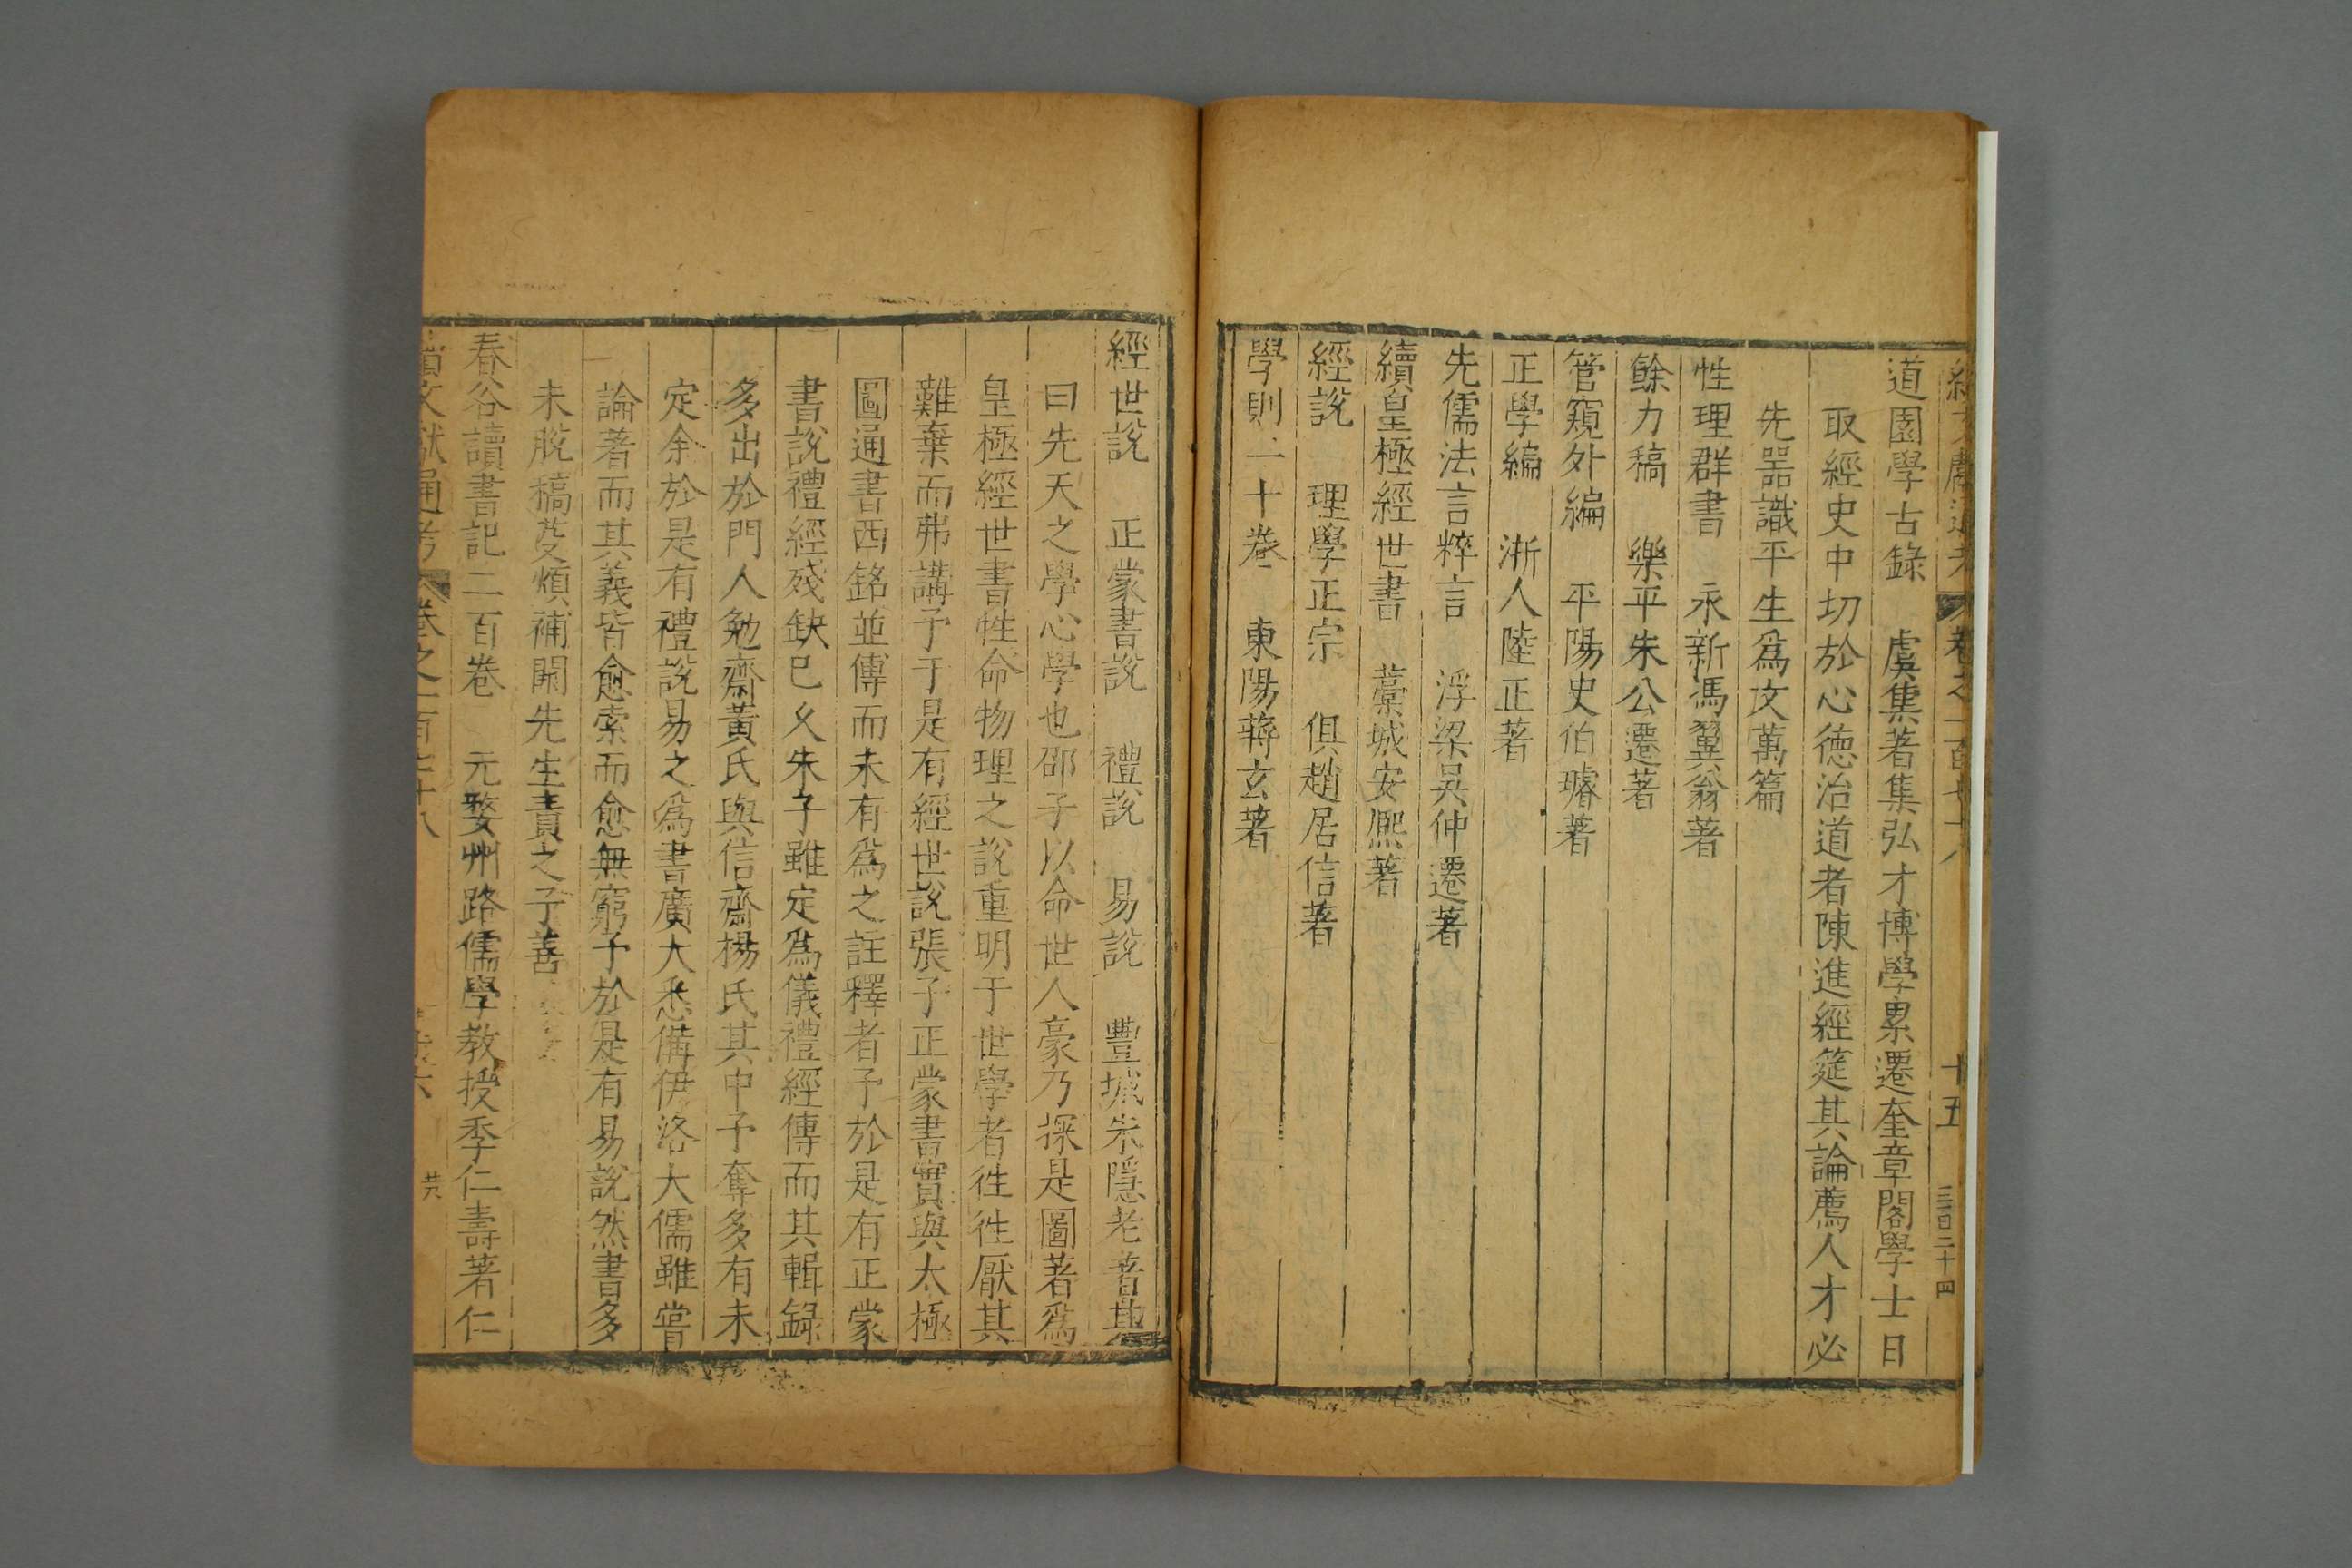 續文獻通考 卷之一百七十八 十五 三百二十四
道園學古錄 虞集著集弘才博學累遷奎章閣學士日
取經史中切於心德治道者陳進經筵其論薦人才必
先噐識平生爲文萬篇
性理群書 永新馮翼翁著
餘力稿 樂平朱公遷著
管窺外編 平陽史伯璿著
正學編 浙人陸正著
先儒法言粹言 浮梁吳仲遷著
續皇極經世書 藁城安熈著
經說 理學正宗 俱趙居信著
學則二十卷 東陽蔣玄著
經世說 正蒙書說 禮說 易說 豐城朱隱老著其
曰先天之學心學也邵子以命世人豪乃探是圖著爲
皇極經世書性命物理之說重明于世學者徃徃厭其
難棄而弗講予于是有經世說張子正蒙書實與太極
圖通書西銘並傳而未有爲之註釋者予於是有正蒙
書說禮經殘缺巳乆朱子雖定爲儀禮經傳而其輯録
多出於門人勉齋黃氏與信齋楊氏其中予奪多有未
定余於是有禮說易之爲書廣大悉備伊洛大儒雖甞
論著而其義皆愈索而愈無窮予於是有易說然書多
未脫稿芟煩補闕先生責之子善
春谷讀書記二百卷 元婺州路儒學教授季仁壽著仁
續文獻通考 卷之一百七十八